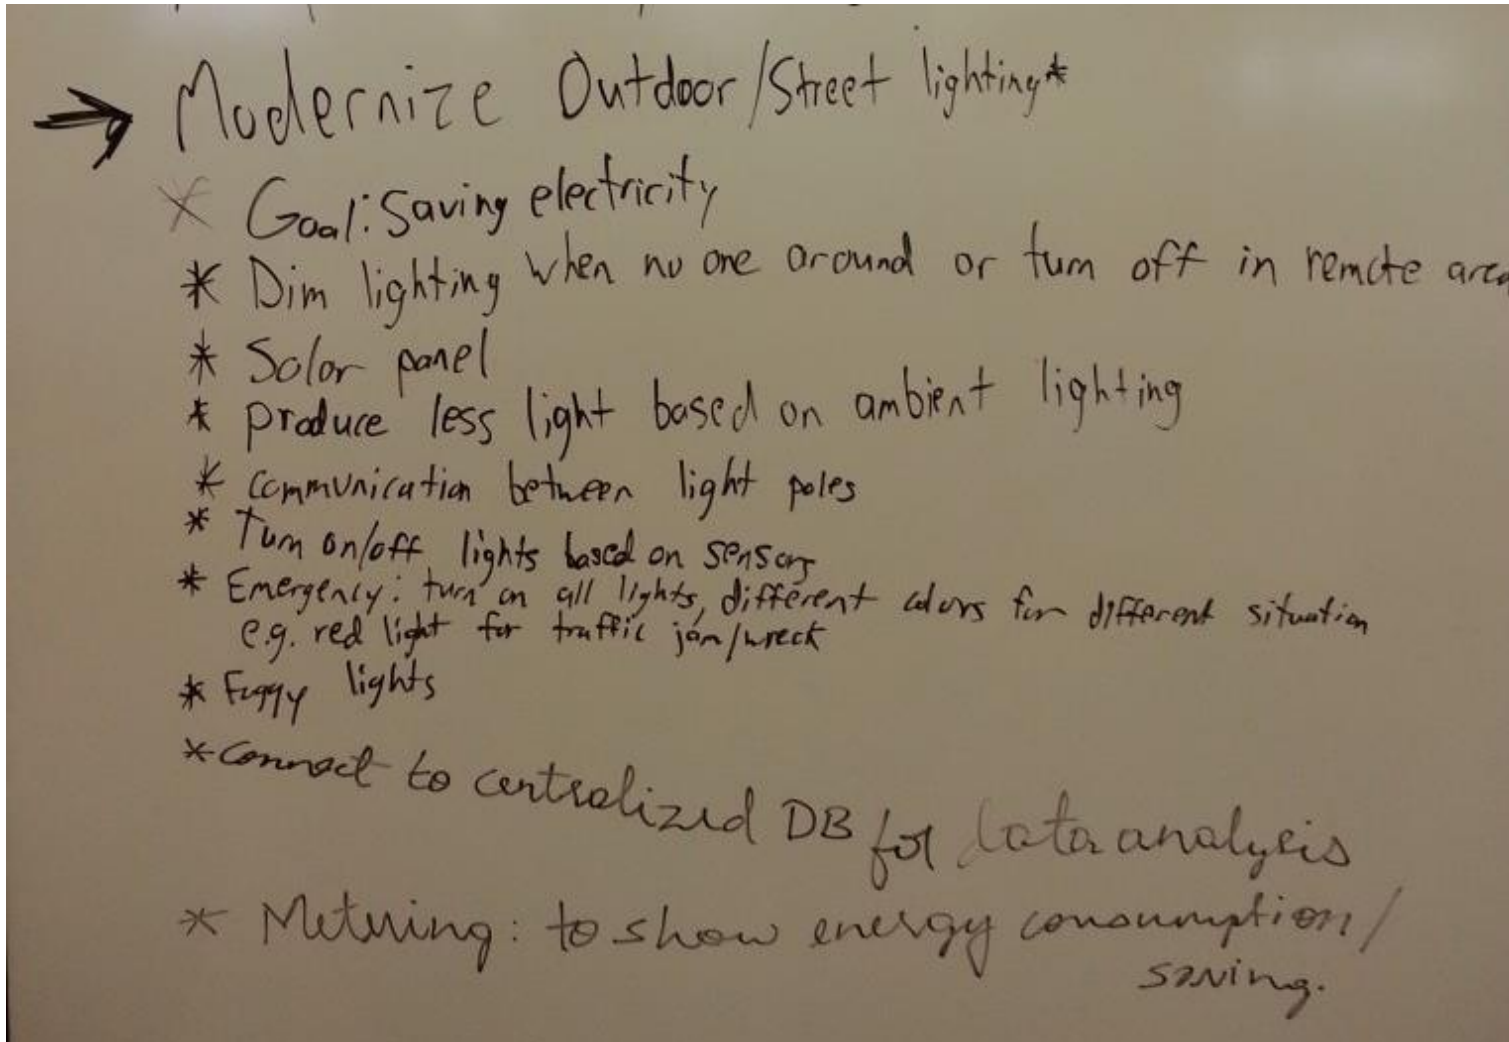 → Modernize Outdoor/Street lighting*
* Goal: Saving electricity
* Dim lighting when no one around or turn off in remote area
* Solar panel
* produce less light based on ambient lighting
* communication between light poles
* Turn on/off lights based on sensors
* Emergency: turn on all lights, different colors for different situation
e.g. red light for traffic jam/wreck
* Foggy lights
* Connect to centralized DB for data analysis
* Metering: to show energy consumption/
saving.